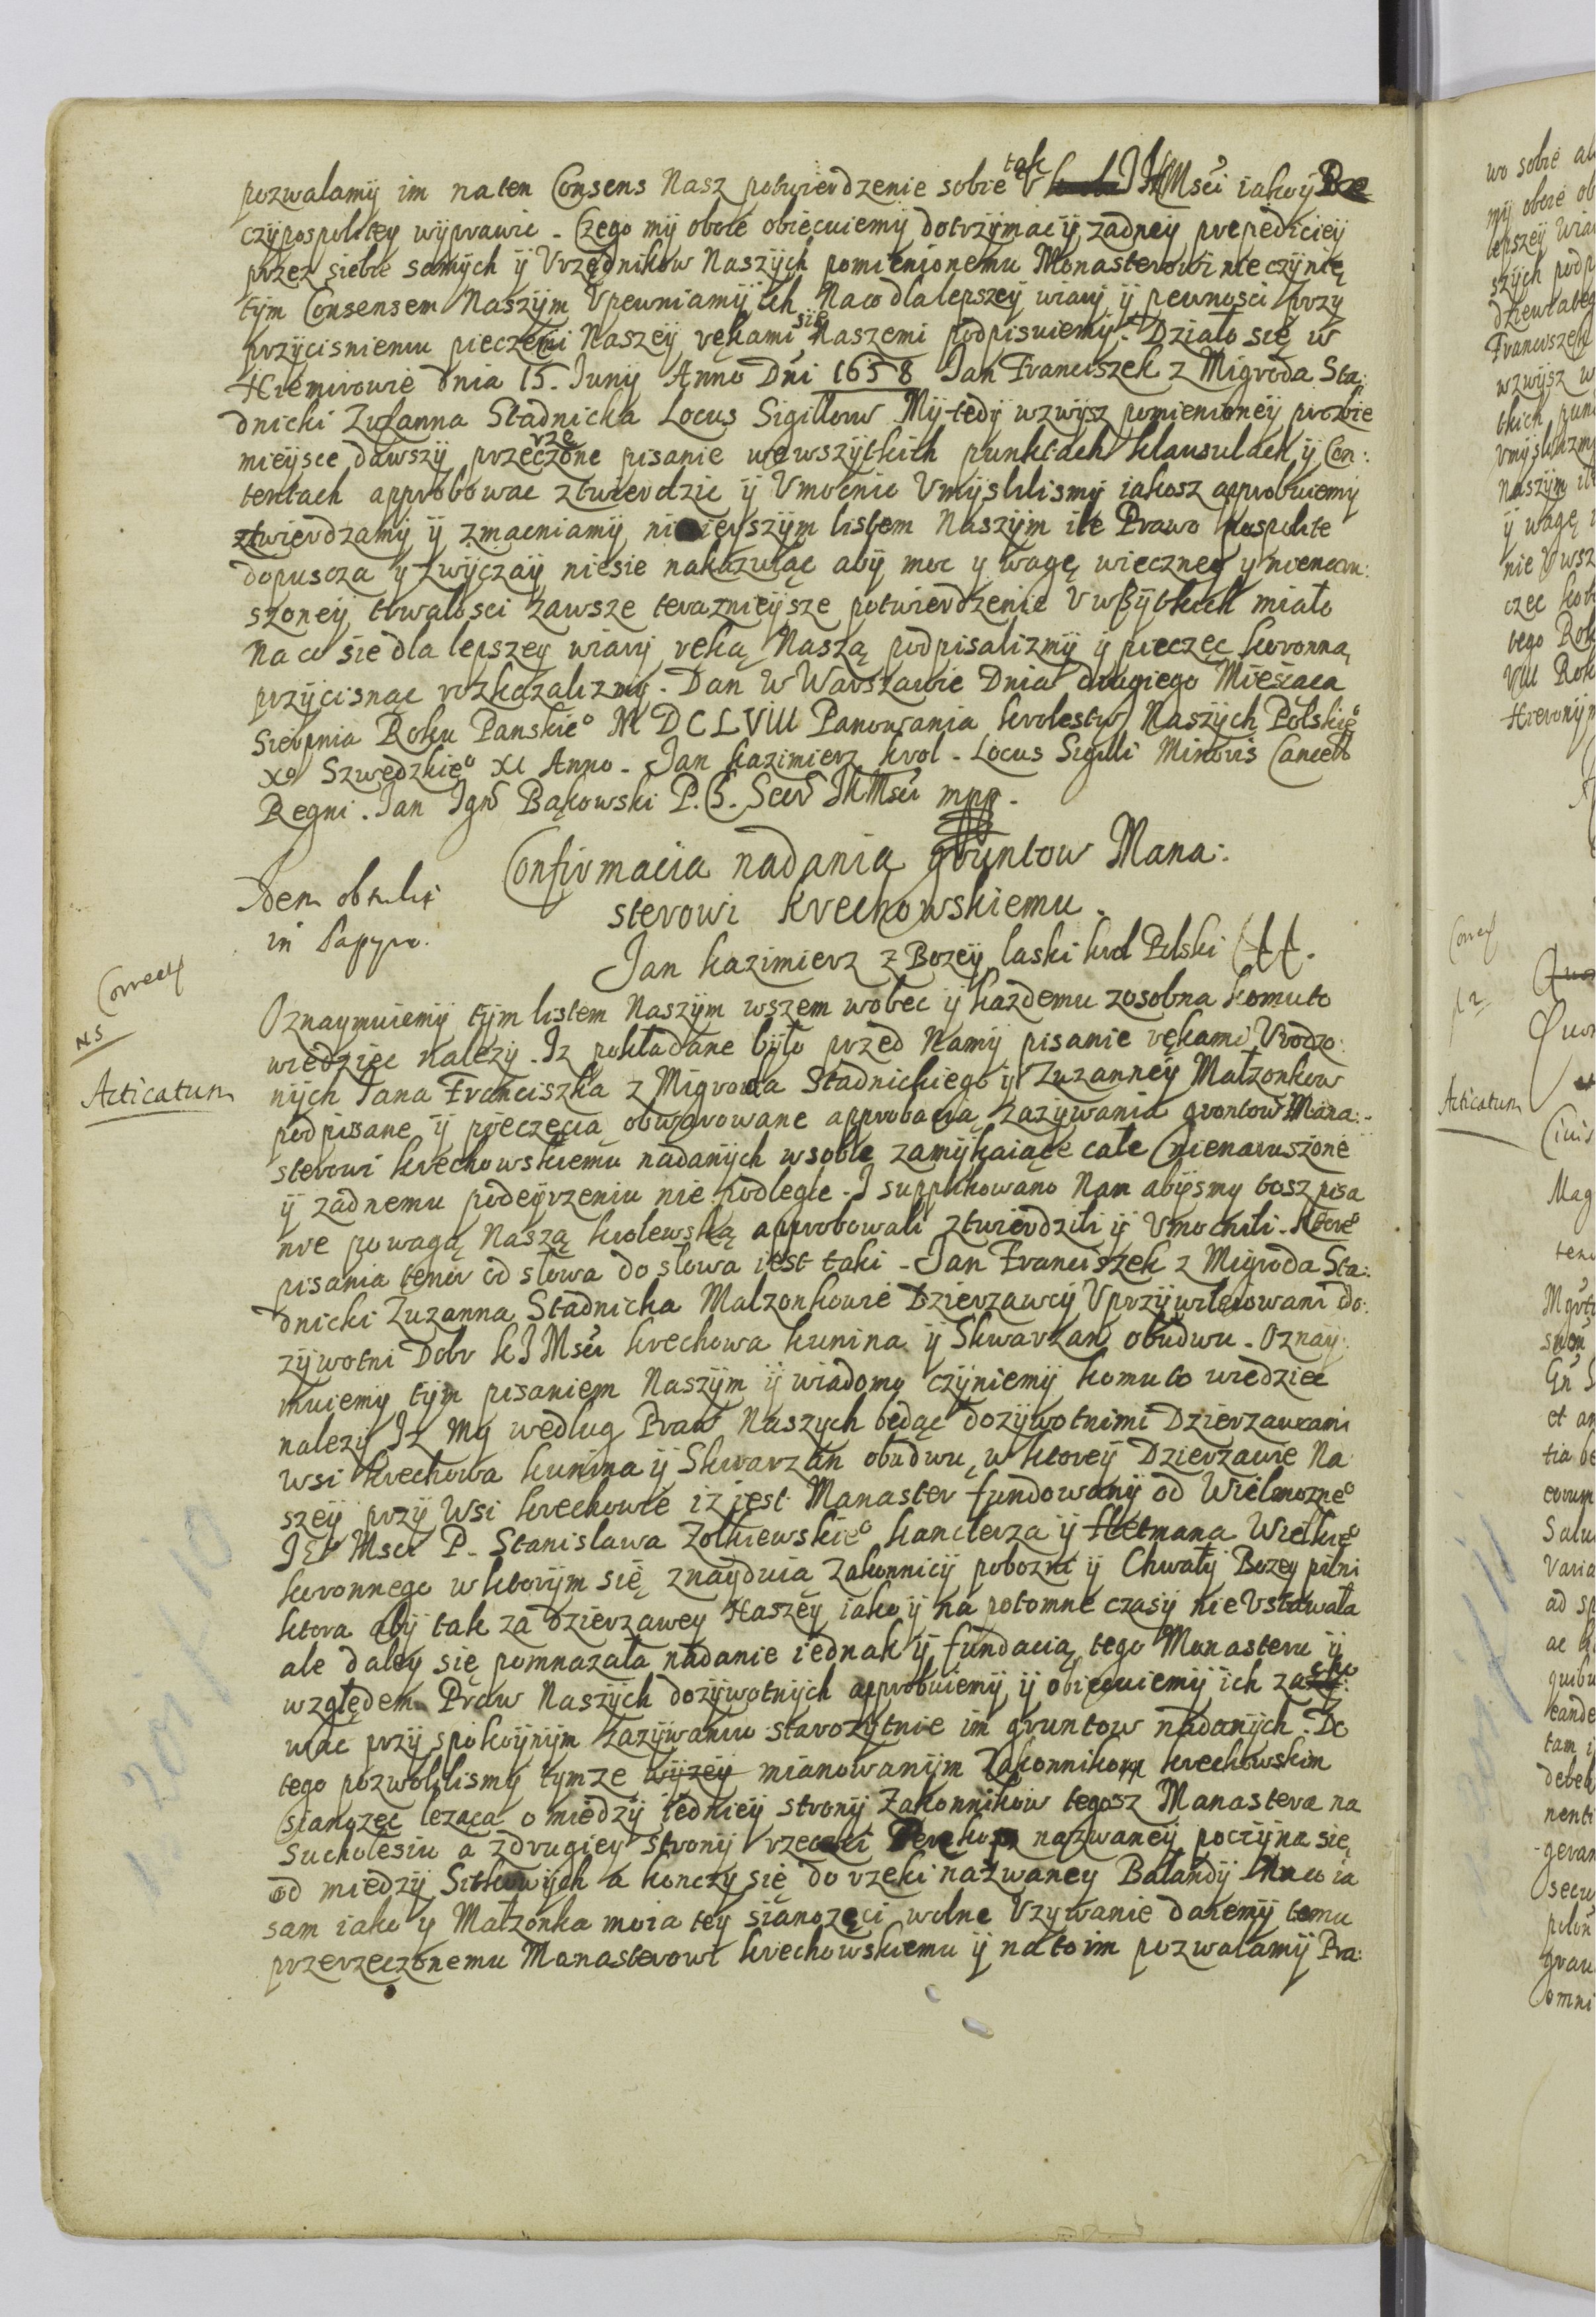 pozwalamÿ im na ten Consens Nasz potwierdzenie sobie tak V JKMsci iakoÿ Rze
czÿpospolitey wÿprawic. Czego mÿ oboie obiecuiemÿ dotrzÿmac ÿ zadneÿ prepediciey
przez siebie samÿch ÿ Vrzędnikow Naszÿch pomienionemu Monasterowi nie czÿnic
tÿm Consensem Naszÿm Vpewniamÿ ich. Na co dla lepszeÿ wiarÿ ÿ pewnosci przÿ
przÿcisnieniu pieczęci Naszeÿ rękami się Naszemi podpisuiemÿ. Działo się w
Niemirowie dnia 15. Iunÿ Anno Dni 1658 Jan Franciszek z Migroda Sta:
dnicki Zuzanna Stadnicka Locus Sigillorum Mÿ tedÿ wzwÿsz pomienioneÿ prozbie
mieÿsce dawszÿ przerzeczone pisanie wewszÿtkich punktach klausulach ÿ Con:
tentach approbowac ztwierdzic ÿ Vmocnic Vmÿslilismÿ iakosz approbuiemÿ
ztwierdzamÿ ÿ zmacniamÿ ninieÿszÿm listem Naszÿm ile Prawo pospolite
dopuscza y zwÿczaÿ niesie nakazuiąc abÿ moc y wagę wieczneÿ y nienaru:
szoneÿ trwałosci zawsze terazniejsze potwierdzenie V wßÿtkich miało
Na co się dla lepszey wiarÿ ręką Naszą podpisalizmÿ ÿ pieczęc koronną
przÿcisnąc rozkazalizmÿ. Dan w Warszawie Dnia drugiego Miesiąca
Sierpnia Roku Panskieº M D C L VIII Panowania krolestw Naszÿch Polskieº
Xº Szwedzkieº XI Anno. Jan kazimierz krol. Locus Sigilli Minoris Cancell
Regni. Jan Ign Bąkowski P. Ch. Secr JKMsci mpp.
Confirmacia nadania gruntow Mana:
sterowi krechowskiemu.
Idem obtulit
in Papyro.
Jan kazimierz z Bozeÿ laski krol Polski Ett.
Correct
NS
Acticatum
Oznaymuiemÿ tÿm listem Naszÿm wszem wobec ÿ każdemu zosobna komu to
wiedziec nalezÿ. Iz pokładane bÿło przed Namÿ pisanie rękami Vrodzo:
nÿch Iana Franciszka z Migroda Stadnickiego ÿ Zuzanneÿ Małzonkow
podpisane ÿ pieczęcią obwarowane approbacią zazÿwania grontow Mana:
sterowi krechowskiemu nadanÿch w sobie zamÿkaiące całe nienaruszone
ÿ zadnemu podeÿrzeniu nie podległe. I supplikowano Nam abÿsmy tosz pisa
nie powagą Naszą krolewską approbowali ztwierdzili ÿ Vmocnili. Ktoreº
pisania tenor od słowa do słowa iest taki. Jan Franciszek z Migroda Sta:
dnicki Zuzanna Stadnicka Malzonkowie Dzierzawcÿ Vprzÿwileiowani do:
zÿwotni Dobr kJMsci krechowa kunina ÿ Skwarzaw obudwu. Oznaÿ:
muiemy tÿm pisaniem Naszÿm ÿ wiadomo czÿniemÿ komu to wiedziec
nalezÿ Iz Mÿ według Praw Naszych będąc dozÿwotnimi Dzierzawcami
wsi krechowa kunina ÿ Skwarzaw obudwu, w ktoreÿ Dzierzawie Na
szeÿ przÿ Wsi krechowie iz jest Manaster fundowanÿ od Wielmozneº
JEº Msci P. Stanisława Zołkiewskieº kanclerza ÿ Hetmana Wielkieº
koronnego w ktorÿm się znayduią zakonnicÿ pobozni ÿ Chwałÿ Bozey pilni
ktora abÿ tak za Dzierzawey Naszeÿ iako ÿ na potomne czasÿ nie Vstawała
ale daleÿ się pomnazała nadanie iednak ÿ fundacią tego Monasteru ÿ
względem Praw Naszÿch dozÿwotnÿch approbuiemÿ ÿ obiecuiemÿ ich zacho
wac przÿ spokoÿnÿm zazÿwaniu starozÿtnie im gruntow nadanÿch. Do
tego pozwolilismÿ tÿmze wÿzeÿ mianowanÿm Zakonnikom krechowskim
Sianozęc lezącą o miedzÿ iedneÿ stronÿ Zakonnikow tegosz Manastera na
Sucholesiu a zdrugieÿ stronÿ rzeczki Perekop nazwaneÿ poczÿna się
od miedzÿ Sitkowÿch a konczÿ się do rzeki nazwaney Balandÿ Na co ia
sam iako y Małzonka moia tey sianozęci wolne Vzywanie daiemÿ temu
przerzeczonemu Monasterowi krechowskiemu ÿ na to im pozwalamÿ Pra: